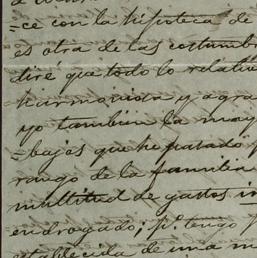 =ce con la hipoteca de
es otra de las costumbr
diré que todo lo relativ
harmonista y agra
yo tambien la may
=bajos que he pasado p
rango de la familia
multitud de gastos in
endrogado; p.o tengo p
establecida de una m